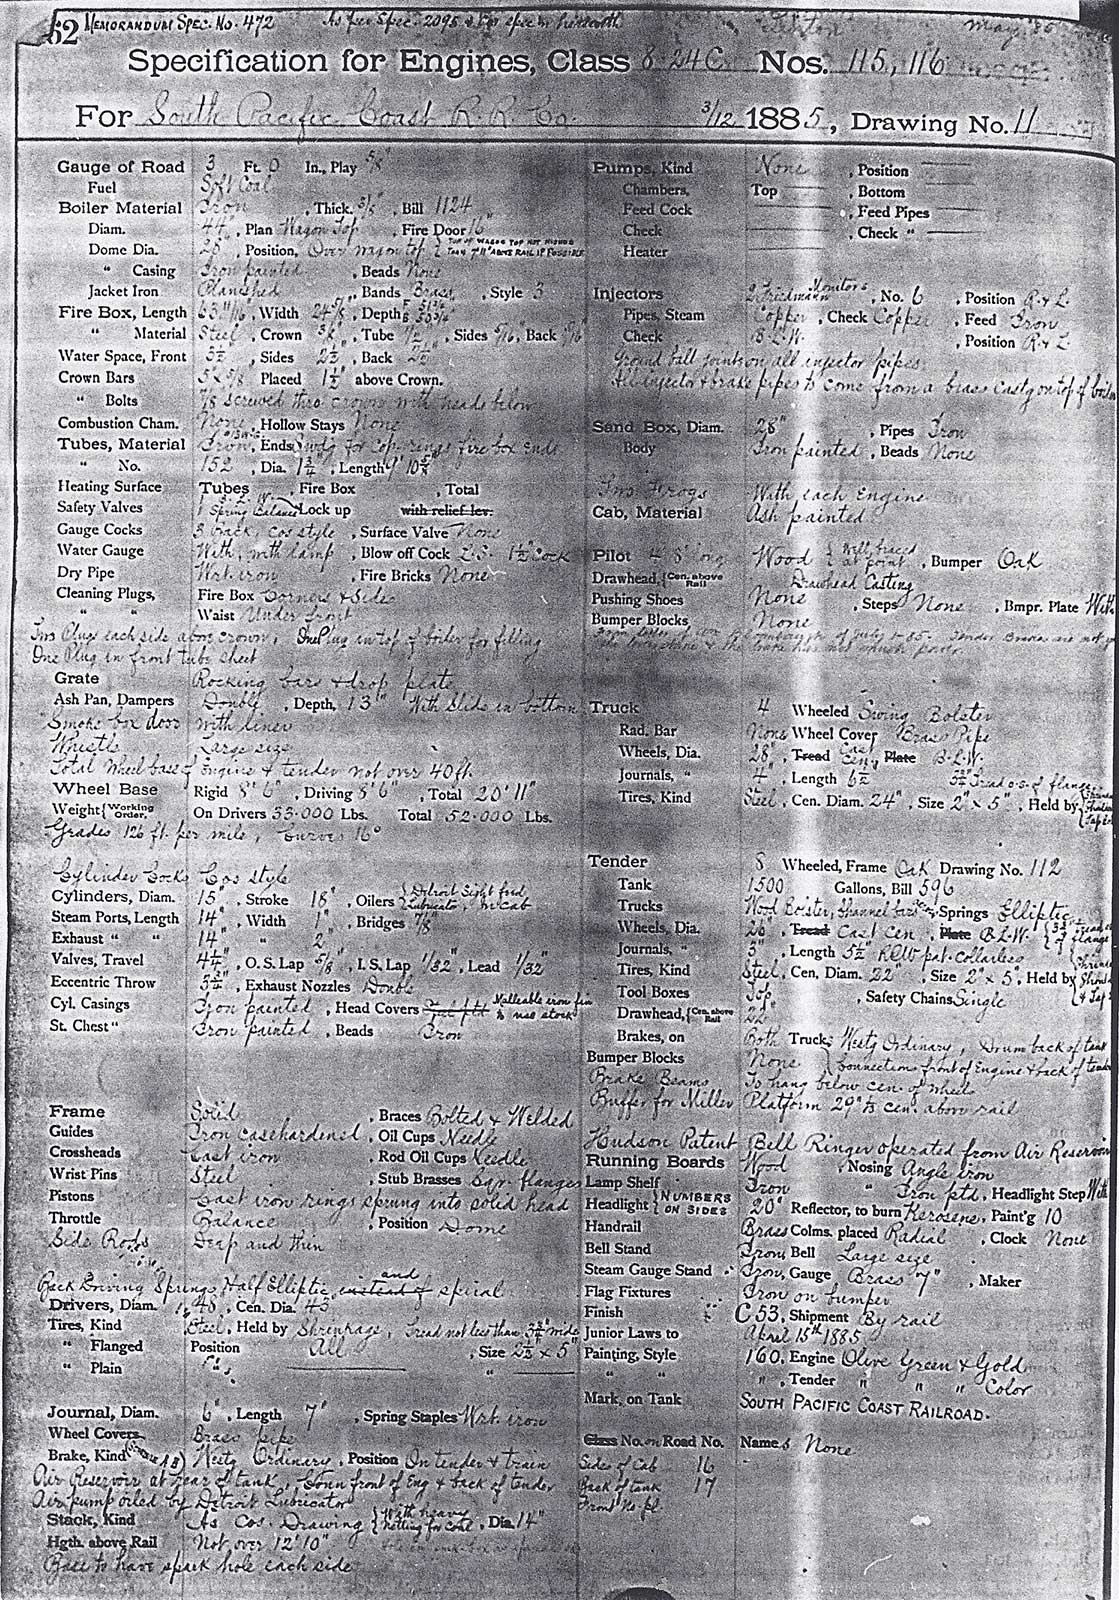 52 MEMORANDUM SPEC. NO. 472 As per Spec. 2095 & May 85
Specification for Engines, Class 8 24C Nos. 115, 116
For South Pacific Coast R. R. Co. 3/12 1885, Drawing No. 11
Gauge of Road 3 Ft. 0 In., Play 5/8"
Fuel Soft Coal
Boiler Material Iron, Thick. 3/8, Bill 1124
Diam. 44", Plan Wagon Top, Fire Door 16"
Dome Dia. 28", Position, Over wagon top { TOP OF WAGON TOP NOT HIGHER THAN 7'11" ABOVE RAIL IF POSSIBLE
" Casing Iron painted, Beads None
Jacket Iron Planished, Bands Brass, Style 3
Fire Box, Length 63 11/16, Width 24 5/8", Depth
" Material Steel, Crown 3/8", Tube 1/2", Sides 5/16", Back 5/16"
Water Space, Front 3½", Sides 2½", Back 2½"
Crown Bars 5" x 5/8 Placed 1½" above Crown.
" Bolts 7/8 screwed thro. crown with heads below
Combustion Cham. None, Hollow Stays None
Tubes, Material Iron, Ends Swdg for cop. rings fire box ends
" No. 152, Dia. 1¾", Length 9' 10
Heating Surface Tubes, Fire Box, Total
Safety Valves 1 Spring Balance Lock up with relief lev.
Gauge Cocks 3 back, Cos style, Surface Valve None
Water Gauge With, with lamp, Blow off Cock L.S. 1½" Cock
Dry Pipe Wrt. iron, Fire Bricks None
Cleaning Plugs, Fire Box Corners & Sides
" " Waist Under front
Two Plugs each side above crown, One Plug in top of boiler for filling
One Plug in front tube sheet
Grate Rocking bars & drop plate
Ash Pan, Dampers Double, Depth, 13" With slide in bottom
Smoke box door with liner
Whistle Large size
Total Wheel base of Engine & tender not over 40 ft.
Wheel Base Rigid 8' 6", Driving 8' 6", Total 20' 11"
Weight { Working Order, On Drivers 33.000 Lbs. Total 52.000 Lbs.
Grades 126 ft. per mile, Curves 16°
Cylinder Cocks Cos style
Cylinders, Diam. 15", Stroke 18", Oilers { Detroit Sight feed Lubricator, in Cab
Steam Ports, Length 14", Width 1", Bridges 7/8"
Exhaust " " 14" " 2"
Valves, Travel 4½", O. S. Lap 5/8", I. S. Lap 1/32", Lead 1/32"
Eccentric Throw, Exhaust Nozzles Double
Cyl. Casings Iron painted, Head Covers Malleable iron to use stock
St. Chest " Iron painted, Beads Iron
Frame Solid, Braces Bolted & Welded
Guides Iron casehardened, Oil Cups Needle
Crossheads Cast iron, Rod Oil Cups Needle
Wrist Pins Steel, Stub Brasses Sqr. flanges
Pistons Cast iron rings sprung into solid head
Throttle Balance, Position Dome
Side Rods Deep and thin
Back Driving Springs Half Elliptic instead of and spiral
Drivers, Diam. 48, Cen. Dia. 43
Tires, Kind Steel, Held by Shrinkage, Tread not less than 3¾" wide
" Flanged Position All, Size 2½ x 5"
" Plain " "
Journal, Diam. 6", Length 7", Spring Staples Wrt. iron
Wheel Covers Brass pipe
Brake, Kind Westg Ordinary, Position On tender & train
Air Reservoir at rear of tank, Conn front of Eng & back of tender
Air pump oiled by Detroit Lubricator
Stack, Kind As Cos. Drawing { With heavy netting for coal, Dia. 14"
Hgth. above Rail Not over 12' 10"
Base to have spark hole each side
Pumps, Kind None, Position
Chambers, Top, Bottom
Feed Cock, Feed Pipes
Check, Check "
Heater
Injectors 2 Friedmann Monitors, No. 6, Position R. & L.
Pipes, Steam Copper, Check Copper, Feed Iron
Check B. L. W., Position R. & L.
Ground ball joints on all injector pipes
All injector & brake pipes to come from a brass castg on top of boiler
Sand Box, Diam. 28", Pipes Iron
Body Iron painted, Beads None
Two Frogs With each Engine
Cab, Material Ash painted
Pilot 4' 8" long Wood { Well braced at point, Bumper Oak
Drawhead, { Cen. above Rail Drawhead Casting
Pushing Shoes None, Steps None, Bmpr. Plate With
Bumper Blocks None
Truck 4 Wheeled Swing Bolster
Rad. Bar None Wheel Cover Brass Pipe
Wheels, Dia. 28", Tread Cast Cen, Plate B. L. W.
Journals, " 4", Length 6½ Tread o.s. of flange
Tires, Kind Steel, Cen. Diam. 24", Size 2" x 5", Held by
Tender 8 Wheeled, Frame Oak Drawing No. 112
Tank 1500 Gallons, Bill 596
Trucks Wood Bolster, Channel bars, Springs Elliptic
Wheels, Dia. 26", Tread Cast Cen, Plate B. L. W. of flange
Journals, " 3", Length 5½" pat. Collarless
Tires, Kind Steel, Cen, Diam. 22", Size 2" x 5", Held by
Tool Boxes Top, Safety Chains Single
Drawhead, { Cen. above Rail 22"
Brakes, on Both Truck, Westg Ordinary, Drum back of tank
Bumper Blocks None { Connections front of Engine & back of tender
Brake Beams To hang below cen. of wheels
Buffer for Miller Platform 29" cen. above rail
Hudson Patent Bell Ringer operated from Air Reservoir
Running Boards Wood, Nosing Angle iron
Lamp Shelf Iron " Iron ptd., Headlight Step With
Headlight { NUMBERS ON SIDES 20" Reflector, to burn Kerosene, Paint'g 10
Handrail Brass Colms. placed Radial, Clock None
Bell Stand Iron Bell Large size
Steam Gauge Stand Iron, Gauge Brass 7", Maker
Flag Fixtures Iron on bumper
Finish C 53, Shipment By rail
Junior Laws to April 15th 1885
Painting, Style 160, Engine Olive Green & Gold
" " ", Tender " " " Color
Mark, on Tank SOUTH PACIFIC COAST RAILROAD.
Class No. on Road No. Names None
Sides of Cab 16
Back of tank 17
Front No. pl.